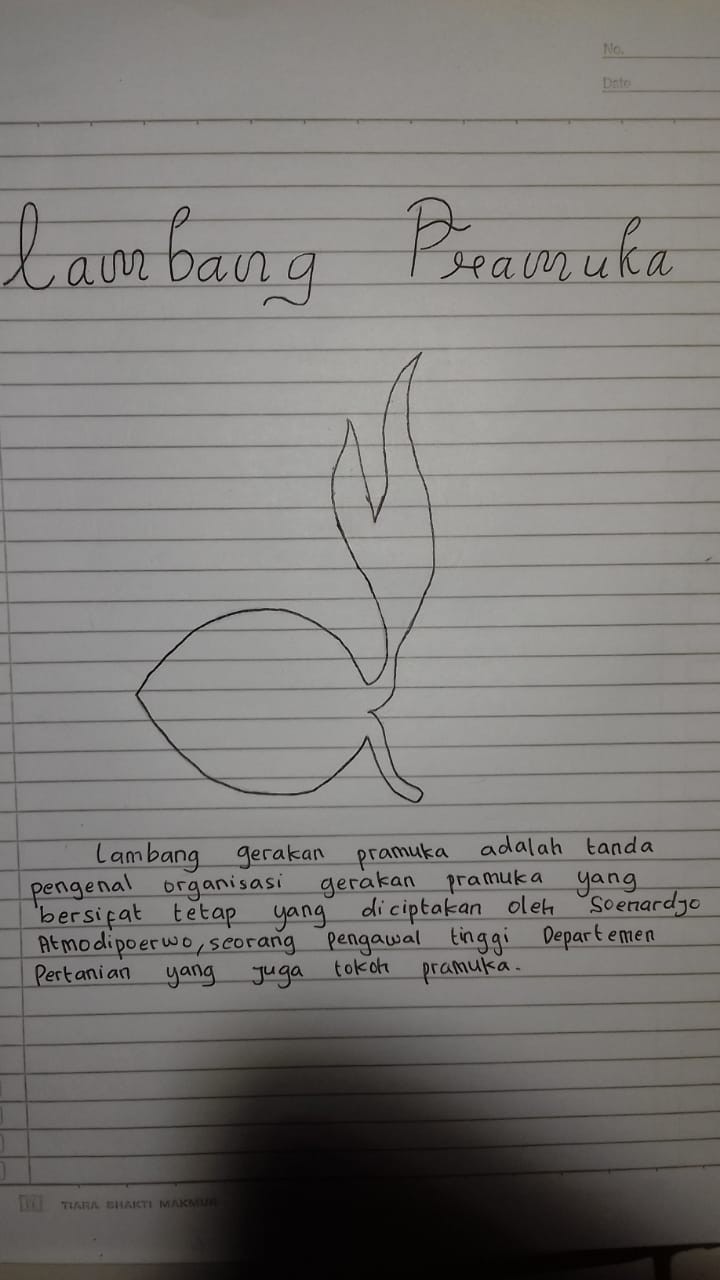 No.
Date
Lambang Pramuka
Lambang gerakan pramuka adalah tanda
pengenal organisasi gerakan pramuka yang
bersifat tetap yang diciptakan oleh Soenardjo
Atmodipoerwo, seorang pengawal tinggi Departemen
Pertanian yang juga tokoh pramuka.
TIARA BHAKTI MAKMUR